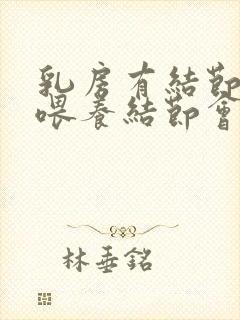 乳房有結節
喂養結節會
林垂銘